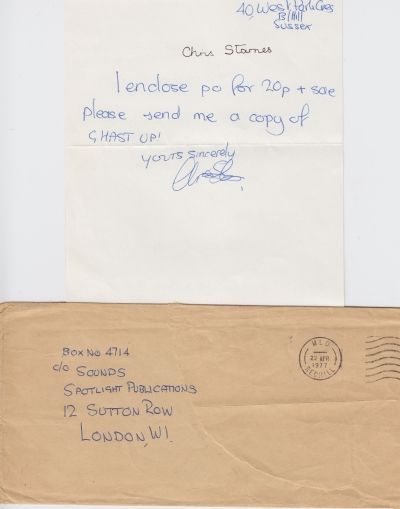 40, West Park Cres
B/Hill
SUSSEX
Chris Starnes
I enclose po for 20p + sae
please send me a copy of
GHAST UP!
YOURS sincerely
BOX No 4714
c/o SOUNDS
SPOTLIGHT PUBLICATIONS
12 SUTTON ROW
LONDON, W1.
MLO
22 APR
1977
BEXHILL